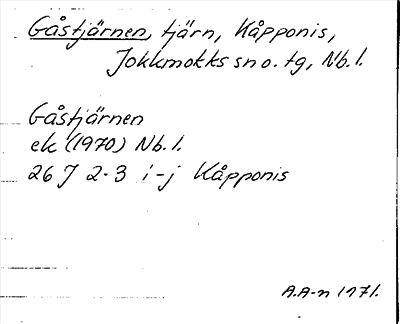 Gåstjärnen, tjärn, Kåpponis,
Jokkmokks sn o. tg, Nb. l.
Gåstjärnen
ek (1970) Nb. l.
26 J 2-3 i-j Kåpponis
A.A-n 1971.